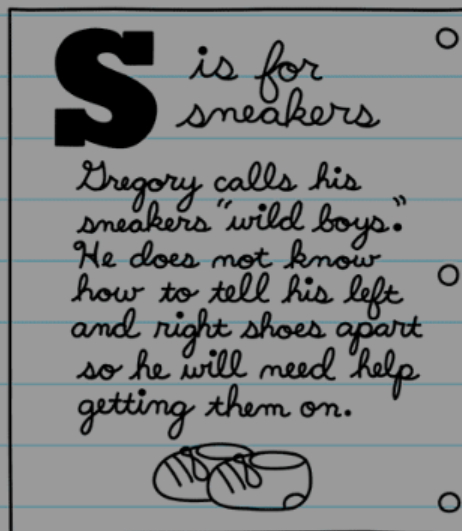 S is for
sneakers
Gregory calls his
sneakers "wild boys."
He does not know
how to tell his left
and right shoes apart
so he will need help
getting them on.